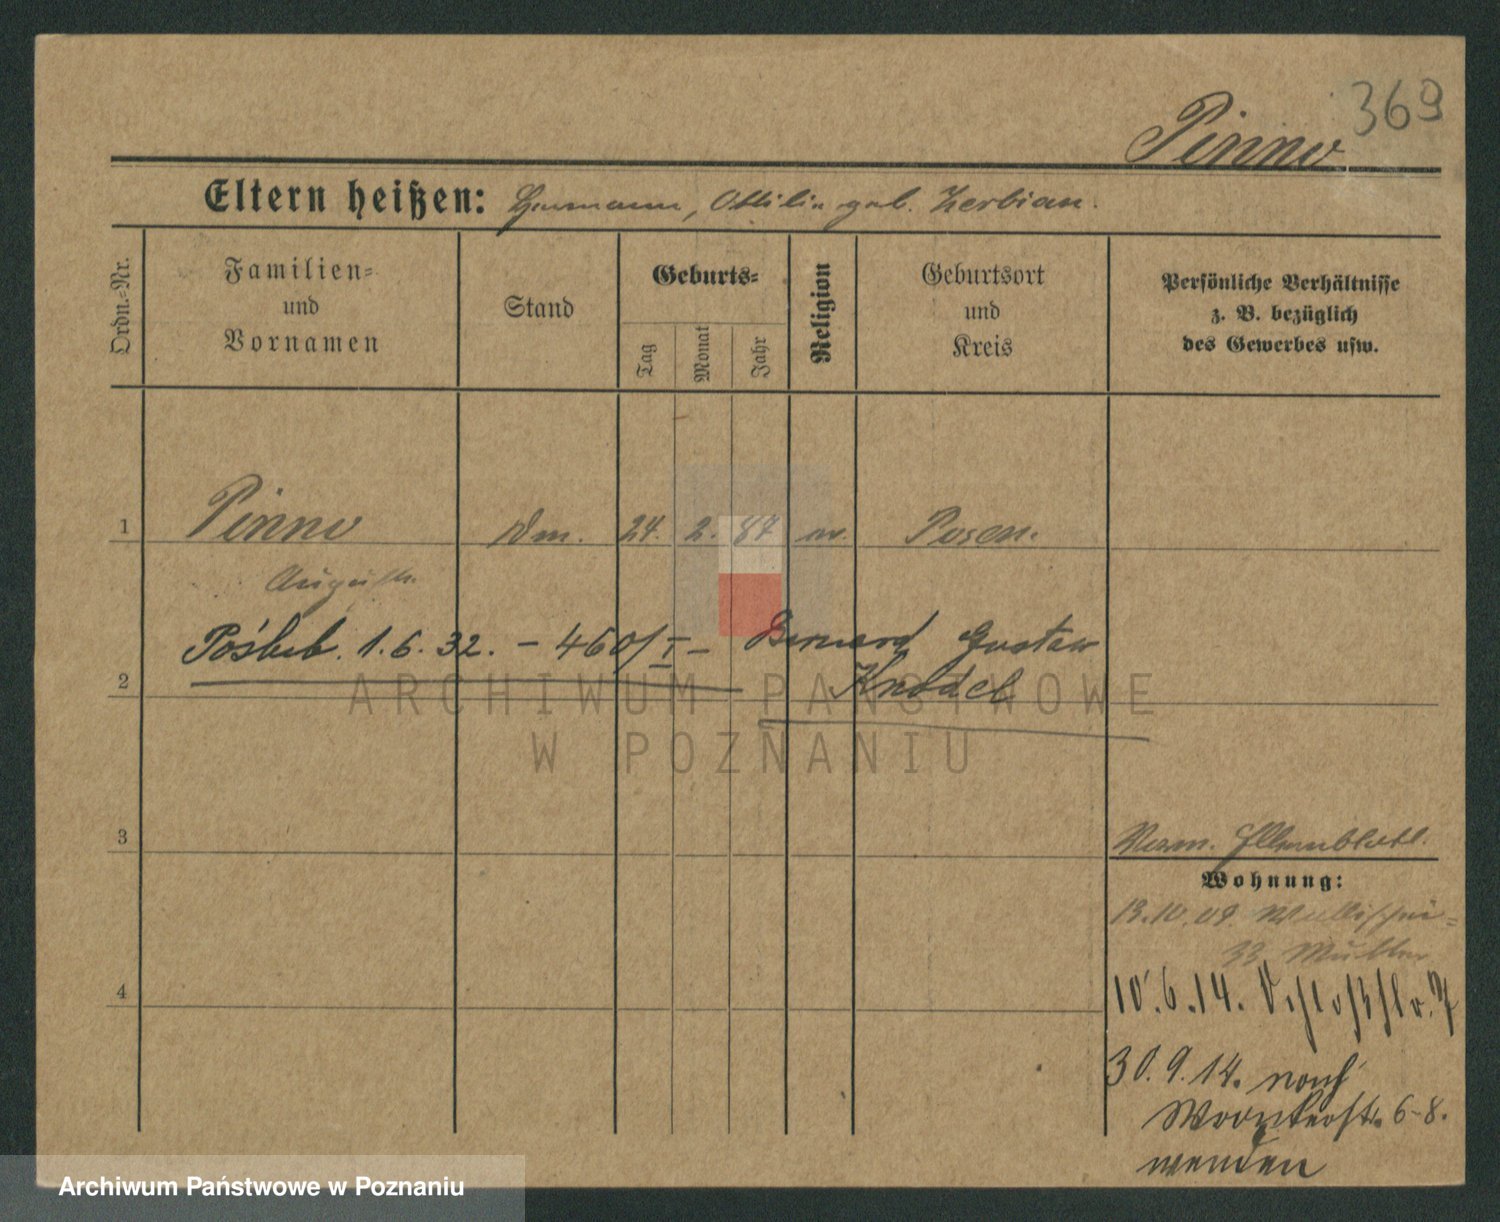 369
Pinno
Eltern heißen: Hermann, Ottilie geb. Zerbian.
Ordn.-Nr.
Familien-
und
Vornamen
Stand
Geburts-
Tag
Monat
Jahr
Religion
Geburtsort
und
Kreis
Persönliche Verhältnisse
z. B. bezüglich
des Gewerbes usw.
1 Pinno 24. 2. 87 ev. Posen.
Auguste
1.6.32. – 460/I – Bernard Gustaw
2 Knodel
ARCHIWUM PAŃSTWOWE
W POZNANIU
3
Wohnung:
13.10.09.
33 Mutter
4
10.6.14. Schloßstr.
30.9.14. nach
Wronkerstr. 6-8.
wenden
Archiwum Państwowe w Poznaniu